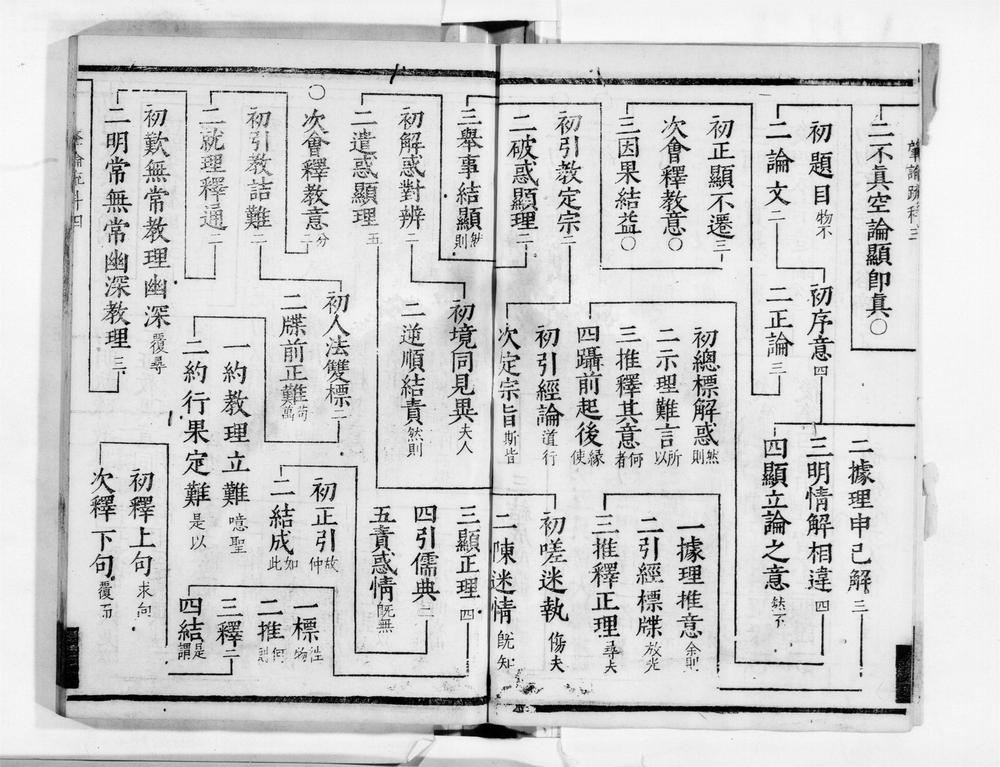 二不真空論顯即真〇
初題目物不
二論文二
初序意四
二正論三
二據理申己解三
三明情解相違四
四顯立論之意然不
初正顯不遷三
次會釋教意〇
三因果結益〇
初總標解惑然則
二示理難言所以
三推釋其意何者
四躡前起後緣使
一據理推意余則
二引經標牒放光
三推釋正理尋夫
初引教定宗二
二破惑顯理二
三舉事結顯然則
初引經論道行
次定宗旨斯皆
初嗟迷執傷夫
二陳迷情既知
初解惑對辨二
二遣惑顯理五
初境同見異夫人
二逆順結責然則
三顯正理四
四引儒典二
五責惑情既無
〇次會釋教意分二
初引教詰難二
二就理釋通二
初人法雙標二
二牒前正難苟萬
初正引故仲
二結成如此
一標往物
二推何則
三釋二
四結是謂
一約教理立難噫聖
二約行果定難是以
初歎無常教理幽深覆尋
二明常無常幽深教理三
初釋上句求向
次釋下句覆而